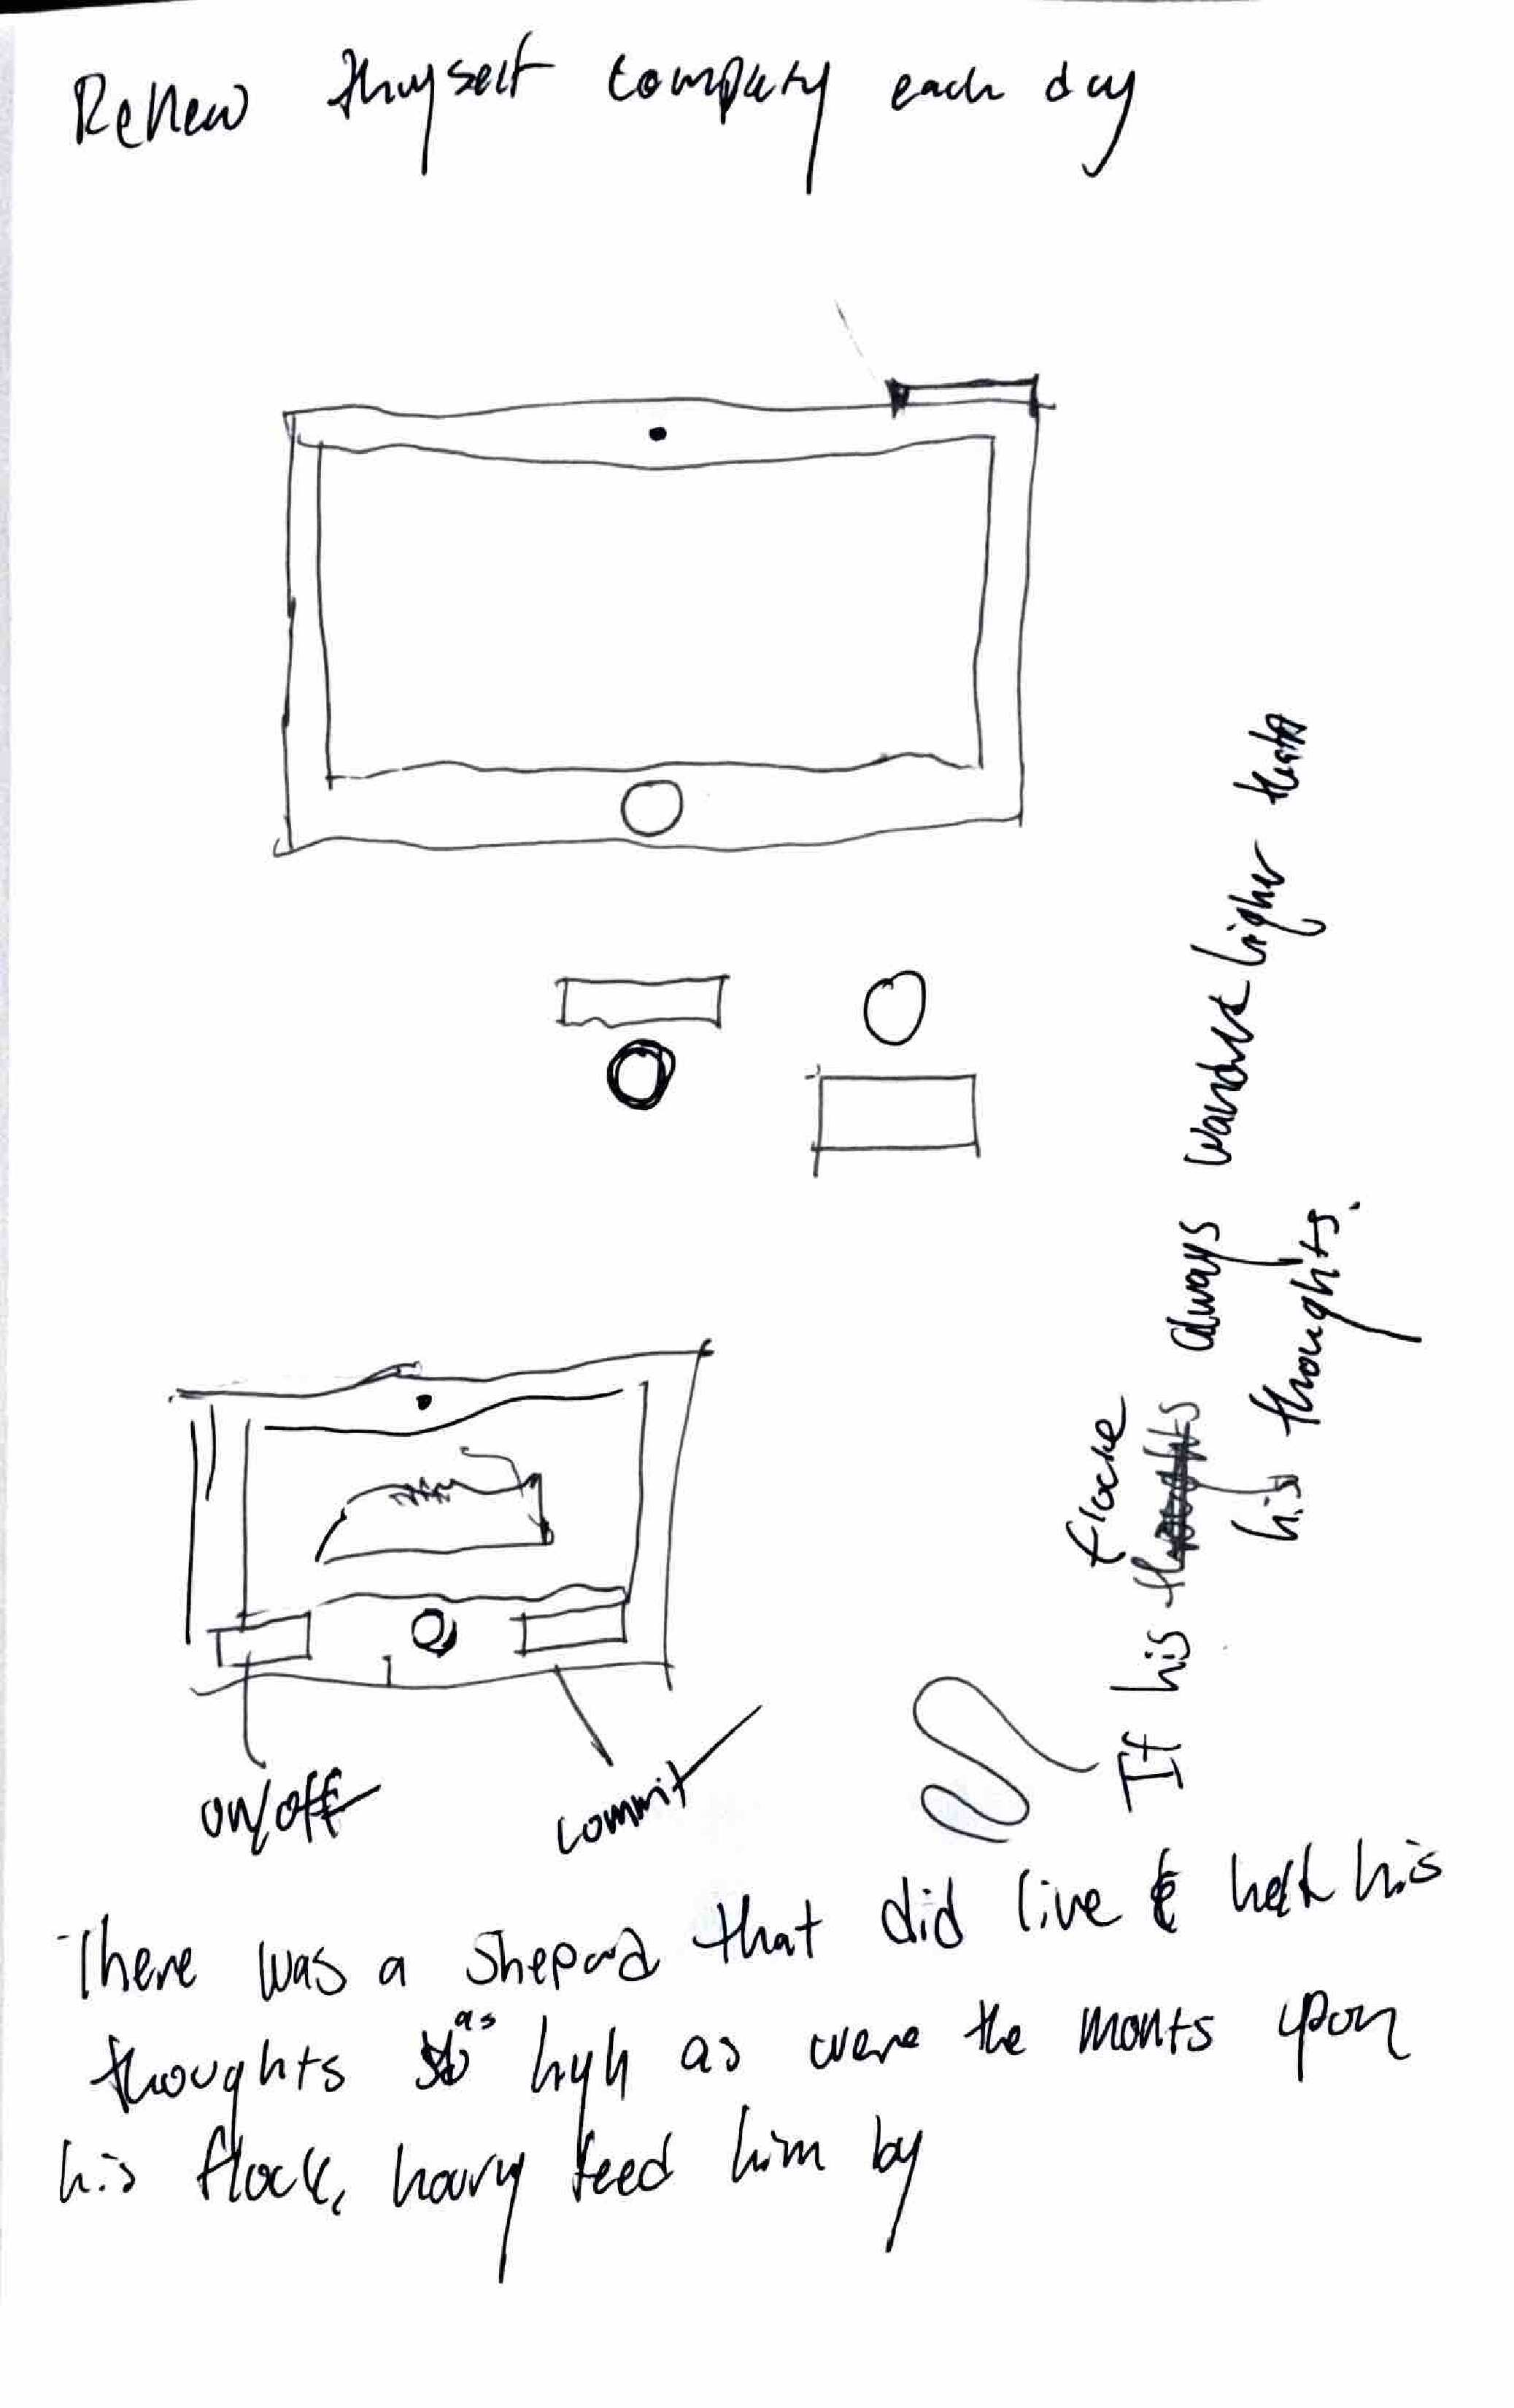 Renew thyself completely each day
on/off
commit
flock
If his thoughts always wander higher than
his thoughts.
There was a Shepard that did live & held his
thoughts as high as were the monts upon
his flock, hourly feed him by